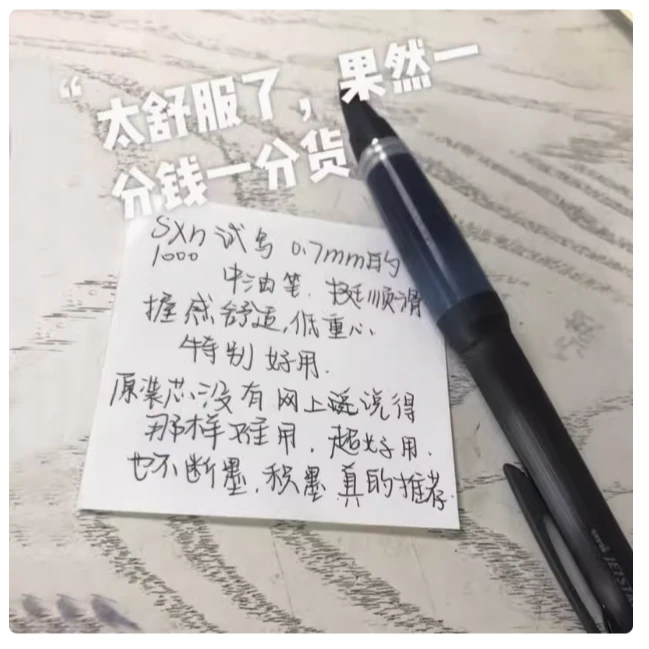 “太舒服了，果然一
分钱一分货
Sxn 试写 0.7mm的
1000
中油笔. 挺顺滑
握感舒适,低重心
特制 好用.
原装芯没有网上说得
那样难用，超好用.
也不断墨,积墨真的推荐.
uni JETSTR